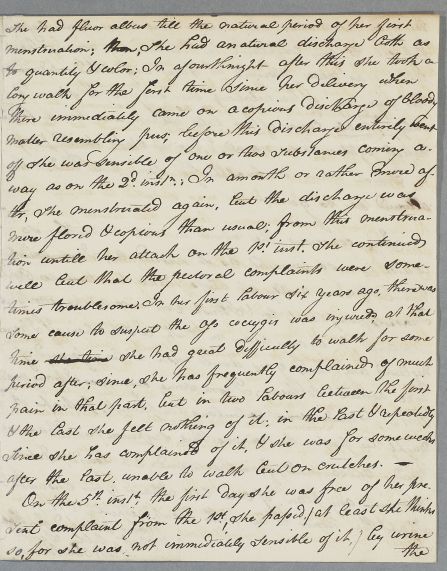 She had fluor albus till the natural period of her first
menstruation; then, she had a natural discharge both as
to quantity & color; In a fourthnight after this she took a
long walk for the first time since her delivery when
there immediately came on a copious discharge of blood,
matter resembling pus, before this discharge entirely went
off she was sensible of one or two substances coming a-
way as on the 2d. instn.; In a month or rather more af-
ter, she menstruated again, but the discharge was
more florid & copious than usual; from this menstrua-
tion untill her attack on the 1st inst. she continued
well but that the pectoral complaints were some-
times troublesome. In her first labour six years ago, there was
some cause to suspect the os coccygis was injured, at that
time she time she had great difficulty to walk for some
period after; since, she has frequently complained of much
pain in that part, but in two labours between the first
& the last she felt nothing of it; in the last & repeatedly
since she has complained of it, & she was for some weeks
after the last, unable to walk but on crutches. —
On the 5th instt. the first day she was free of her pre-
sent complaint from the 1st, she passd (at least she thinks
so, for she was not immediately sensible of it.) by urine
the